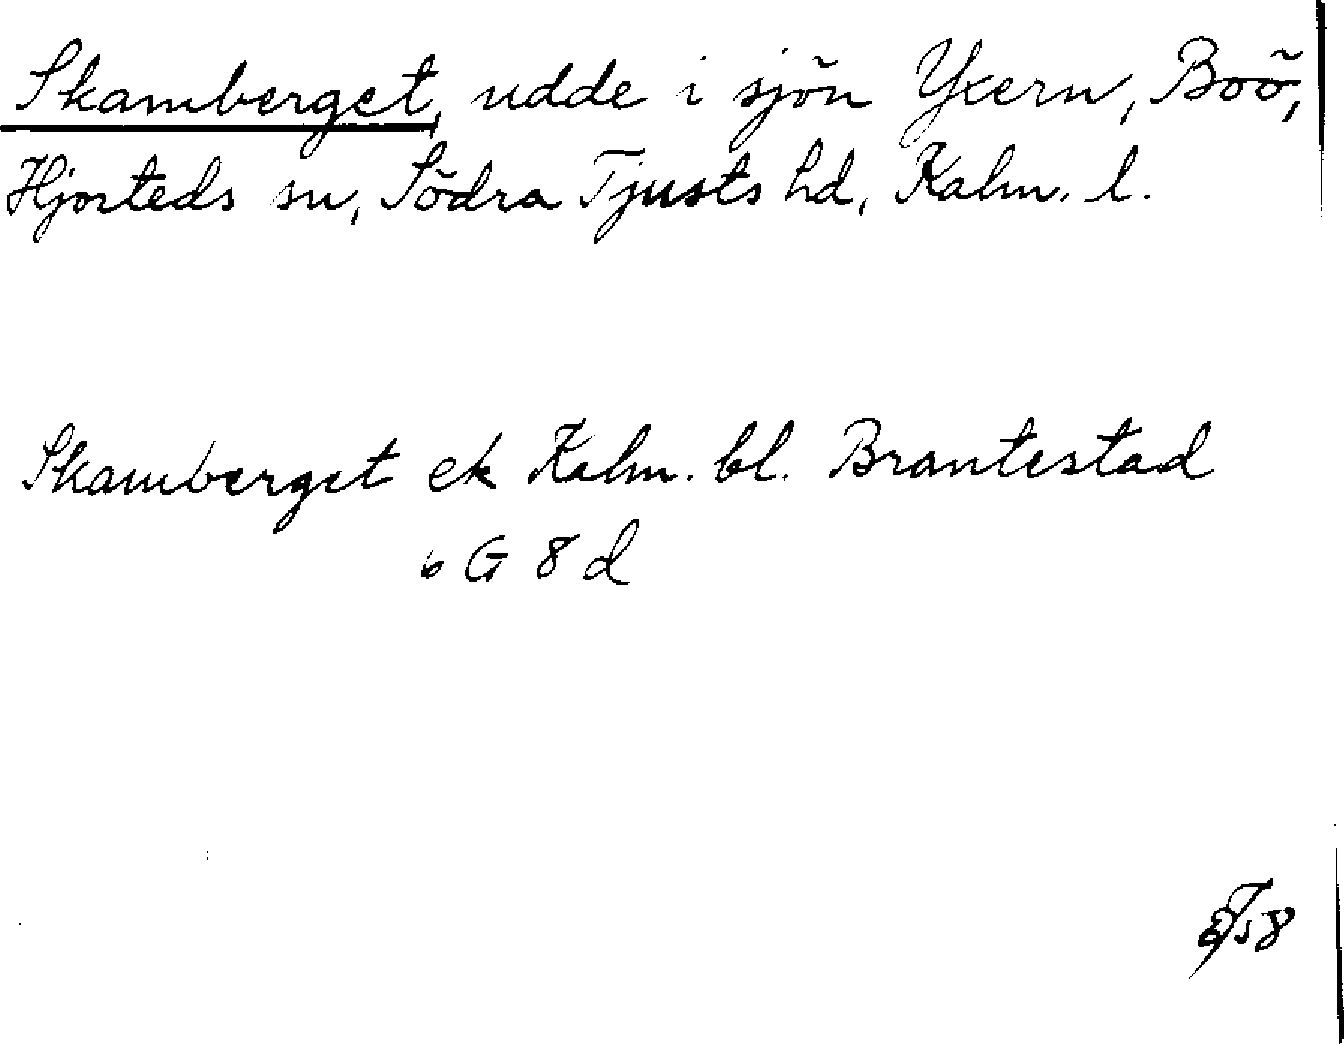 Skamberget, udde i sjön Yxern, Boö,
Hjorteds sn, Södra Tjusts hd, Kalm. l.
Skamberget ek Kalm. bl. Brantestad
6 G 8 d